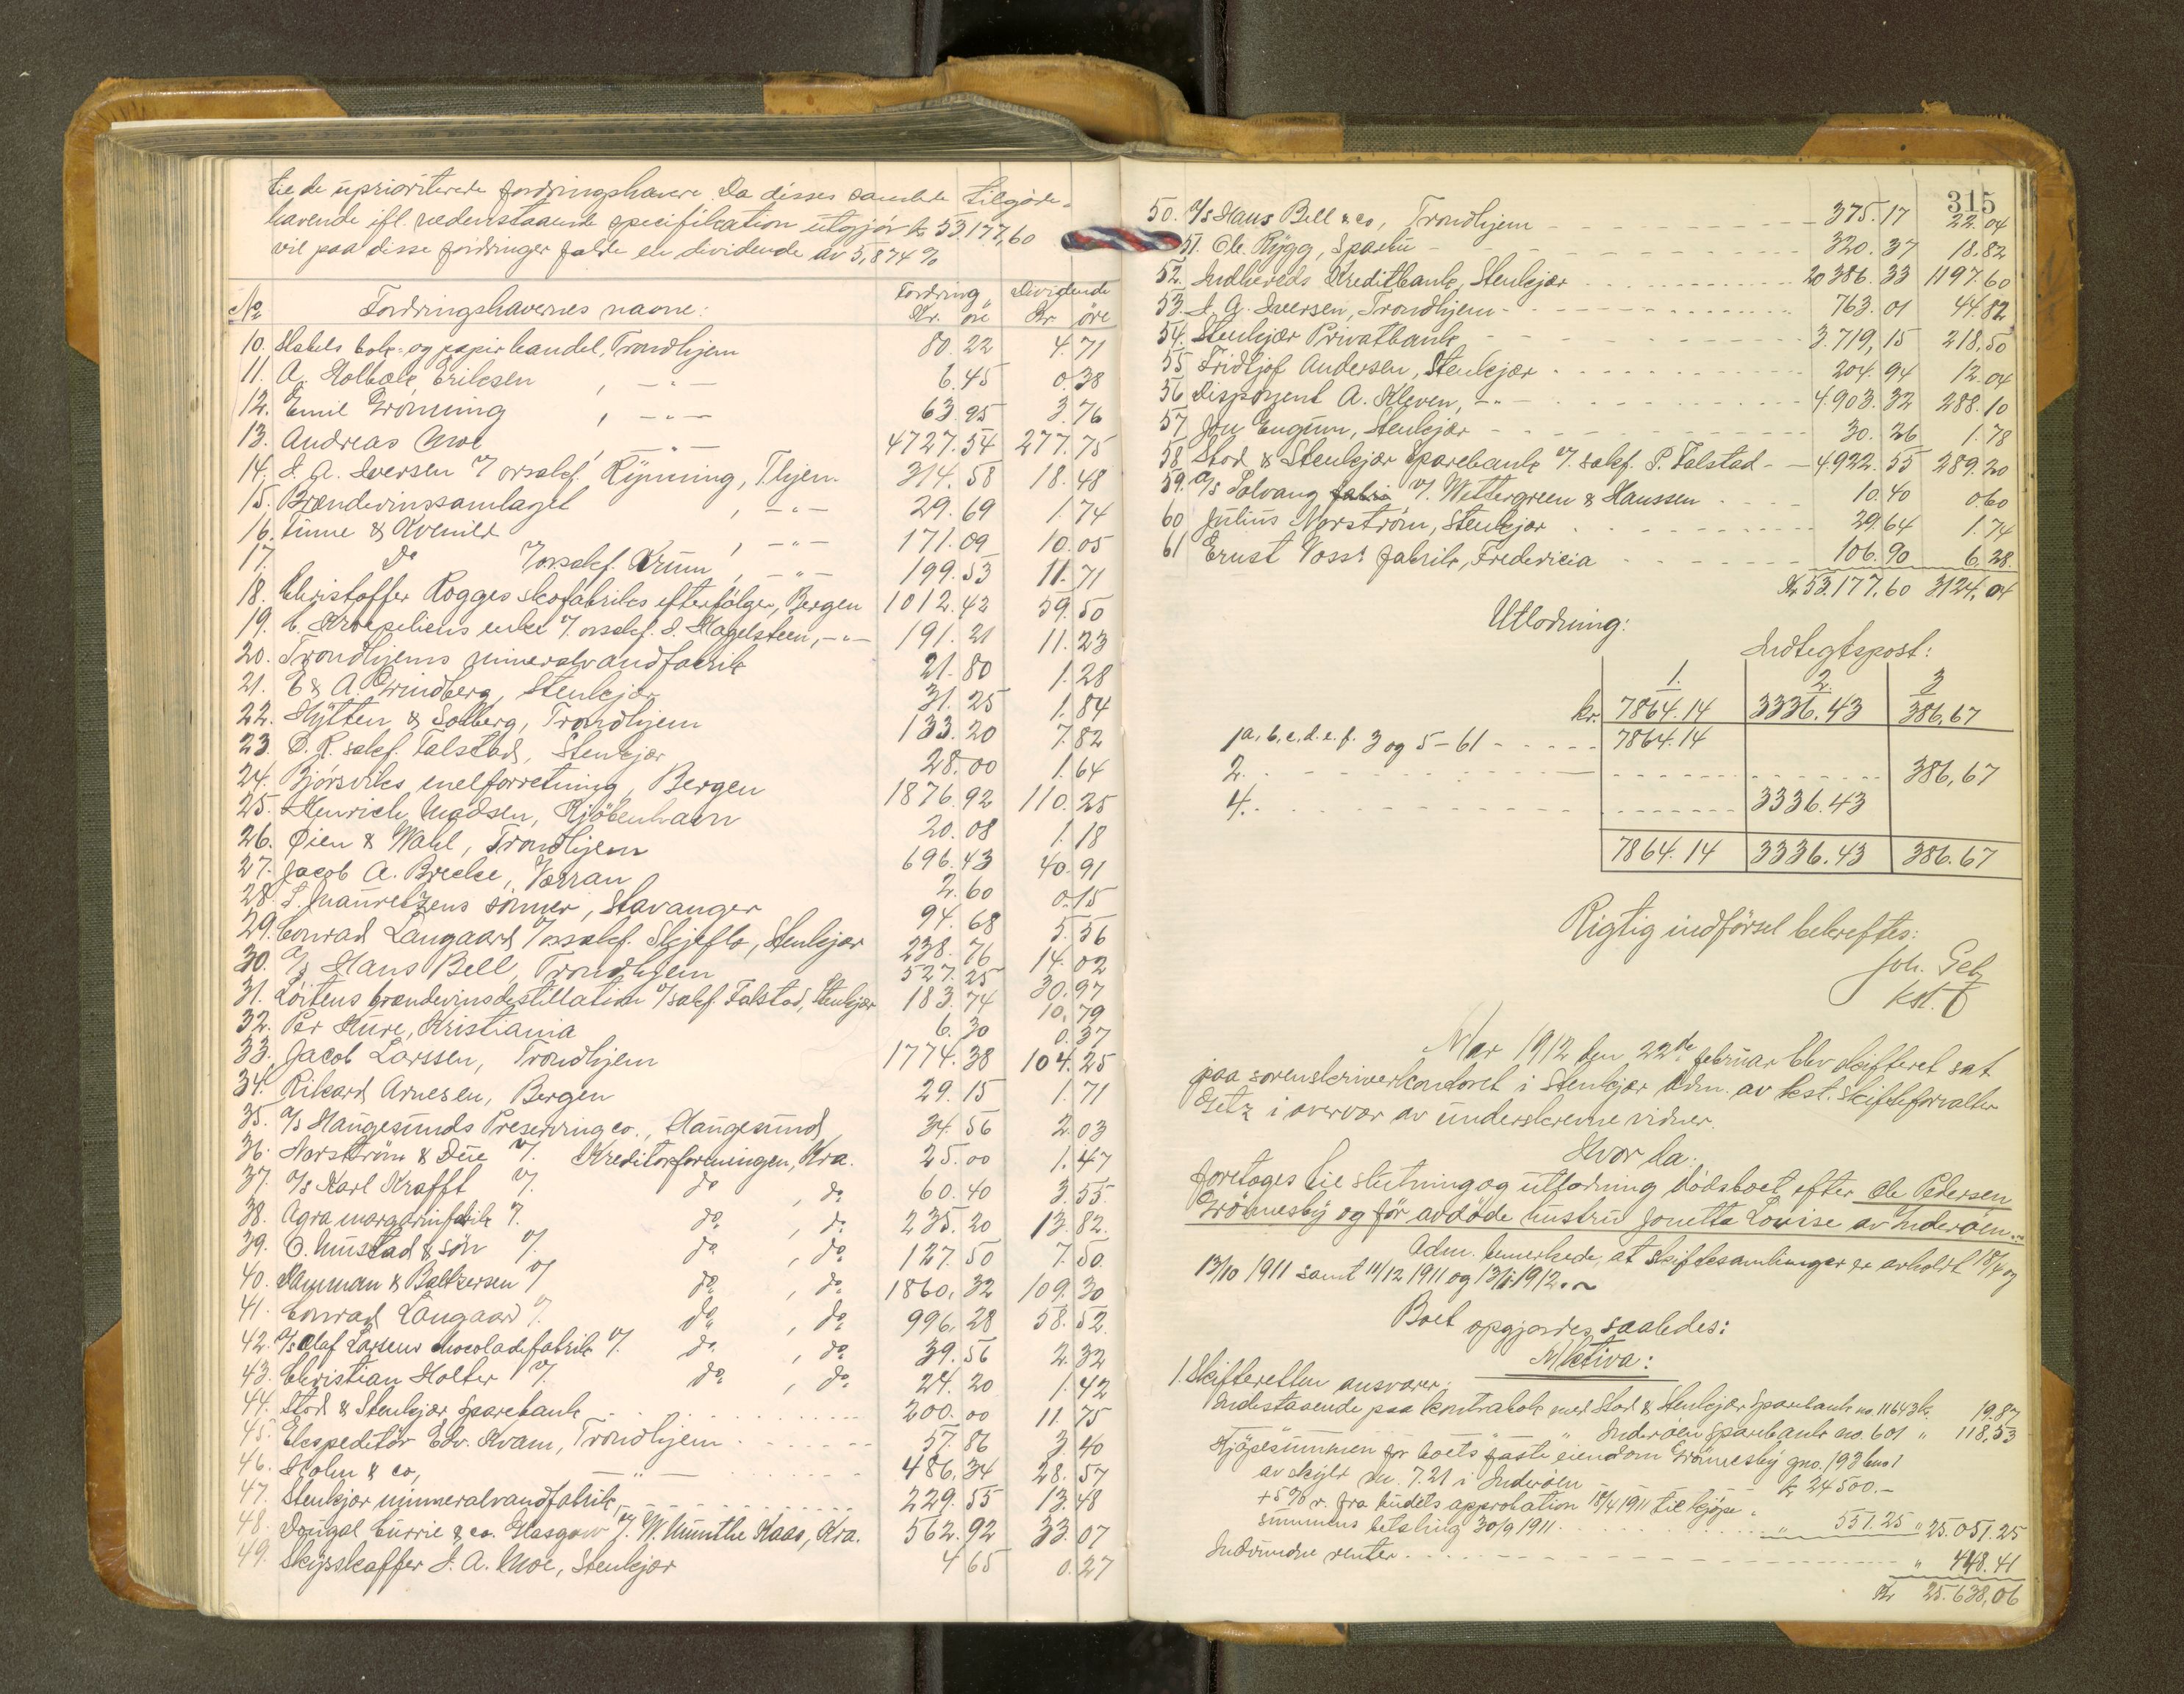 til de uprioriterede fordringshavere. Da disses samlede tilgode-
havende ifl. nedenstaaende specifikation utgjør kr 53177,60
vil paa disse fordringer falde en dividende av 5,874 %
No Fordringshavernes navne: Fordring Kr. øre Dividende Kr øre
10. Stabels bok- og papirhandel, Trondhjem 80.22 4.71
11. A. Holbæk Eriksen , — " — 6.45 0.38
12. Emil Grönning , — " — 63.95 3.76
13. Andreas Moe , — " — 4727.54 277.75
14. I. A. Iversen v/ orsakf. Rynning, Thjem. 314.58 18.48
15. Brændevinssamlaget , — " — 29.69 1.74
16. Finne & Kvenild , — " — 171.09 10.05
17. Do v/ orsakf. Krum , — " — 199.53 11.71
18. Christoffer Rogges skofabriks efterfølger, Bergen 1012.42 59.50
19. C. Kroepeliens enke v/ orsakf. S. Hagelsteen, — " — 191.21 11.23
20. Trondhjems mineralvandfabrik 21.80 1.28
21. E & A. Grindberg, Stenkjær 31.25 1.84
22. Hÿtten & Solberg, Trondhjem 133.20 7.82
23. O. R. sakf. Falstad, Stenkjær 28.00 1.64
24. Bjørsviks melforretning, Bergen 1876.92 110.25
25. Henrich Madsen, Kjöbenhavn 20.08 1.18
26. Øien & Wahl, Trondhjem 696.43 40.91
27. Jacob A. Brekke, Verran 2.60 0.15
28. S. Mauretzens sønner, Stavanger 94.68 5.56
29. Conrad Langaard v/ orsakf. Skjeflo, Stenkjær 238.76 14.02
30. A/s Hans Bell, Trondhjem 527.25 30.97
31. Löitens brændevinsdestillation v/ sakf. Falstad, Stenkjær 183.74 10.79
32. Per Kure, Kristiania 6.30 0.37
33. Jacob Larssen, Trondhjem 1774.38 104.25
34. Rikard Arnesen, Bergen 29.15 1.71
35. A/s Haugesunds Preserving co., Haugesund 34.56 2.03
36. Norström & Due v/. Kreditorforeningen, Kra. 25.00 1.47
37. A/s Karl Krafft v/. do , do 60.40 3.55
38. Agra margarinfabrik v/. do , do 235.20 13.82
39. O. Mustad & søn v/. do , do 127.50 7.50
40. Damman & Baltzersen v/ do , do 1860.32 109.30
41. Conrad Langaard v/. do , do 996.28 58.52
42. A/s Olaf Larsens chocoladefabrik v/. do , do 39.56 2.32
43. Christian Holter v/. do , do 24.20 1.42
44. Stod & Stenkjær Sparebank 200.00 11.75
45. Ekspeditør Edv. Kvam, Trondhjem 57.86 3.40
46. Holm & co, — " — 486.34 28.57
47. Stenkjær mineralvandfabrik, 229.55 13.48
48. Dougal Currie & co. Glasgow v/. W. Munthe Kaas, Kra. 562.92 33.07
49. Skysskaffer I. A. Moe, Stenkjær 4 65 0.27
315
50. A/s Hans Bell & co, Trondhjem 375.17 22.04
51. Ole Rygg, Sparbu 320.37 18.82
52. Indhereds Kreditbank, Stenkjær 20386.33 1197.60
53. I. A. Iversen, Trondhjem 763.01 44.82
54. Stenkjær Privatbank 3.719,15 218.50
55 Fridtjof Andersen, Stenkjær 204.94 12.04
56 Disponent A. Kleven, — " — 4.903.32 288.10
57 Jon Eugum, Stenkjær 30.26 1.78
58 Stod & Stenkjær Sparebank v/. sakf. P. Falstad 4922.55 289.20
59. A/s Solvang fabri v/. Wettergreen & Hanssen 10.40 0.60
60 Julius Norström, Stenkjær 29.64 1.74
61 Ernst Voss' fabrik, Fredericia 106.90 6.28
Kr 53.177,60 3124.04
Utlodning:
Indtegtspost:
1. 2. 3
kr. 7864.14 3336.43 386,67
1 a, b, c, d. e. f. 3 og 5 - 61 7864.14
2. 386,67
4. 3336.43
7864.14 3336.43 386.67
Rigtig indførsel bekreftes:
Joh. Getz
kst.
Aar 1912 den 22de februar blev skifteret sat
paa sorenskriverkontoret i Stenkjær adm. av kst. skifteforvalter
Getz i overvær av underskrevne vidner.
Hvor da:
foretoges til slutning og utlodning dödsboet efter Ole Pedersen
Grönnesby og før avdöde hustru Jonetta Lovise av Inderöen.
Adm. bemerkede, at skiftesamlinger er avholdt 18/4 og
13/10 1911 samt 11/12 1911 og 13/1 1912.
Boet opgjordes saaledes:
Aktiva:
1. Skifteretten ansvarer:
Indestaaende paa kontrabok med Stod & Stenkjær Sparebank no. 11643 k. 19.87
" Inderöen Sparebank no. 601 " 118.53
Kjøpesummen for boets faste eiendom Grönnesby gno. 193 bno 1
av skyld mk. 7.21 i Inderöen kr 24500.—
+ 5% r. fra budets approbation 18/4 1911 til kjøpe-
summens betaling 30/9 1911 " 551.25 " 25.051.25
Indvundne renter " 448.41
Kr 25.638,06